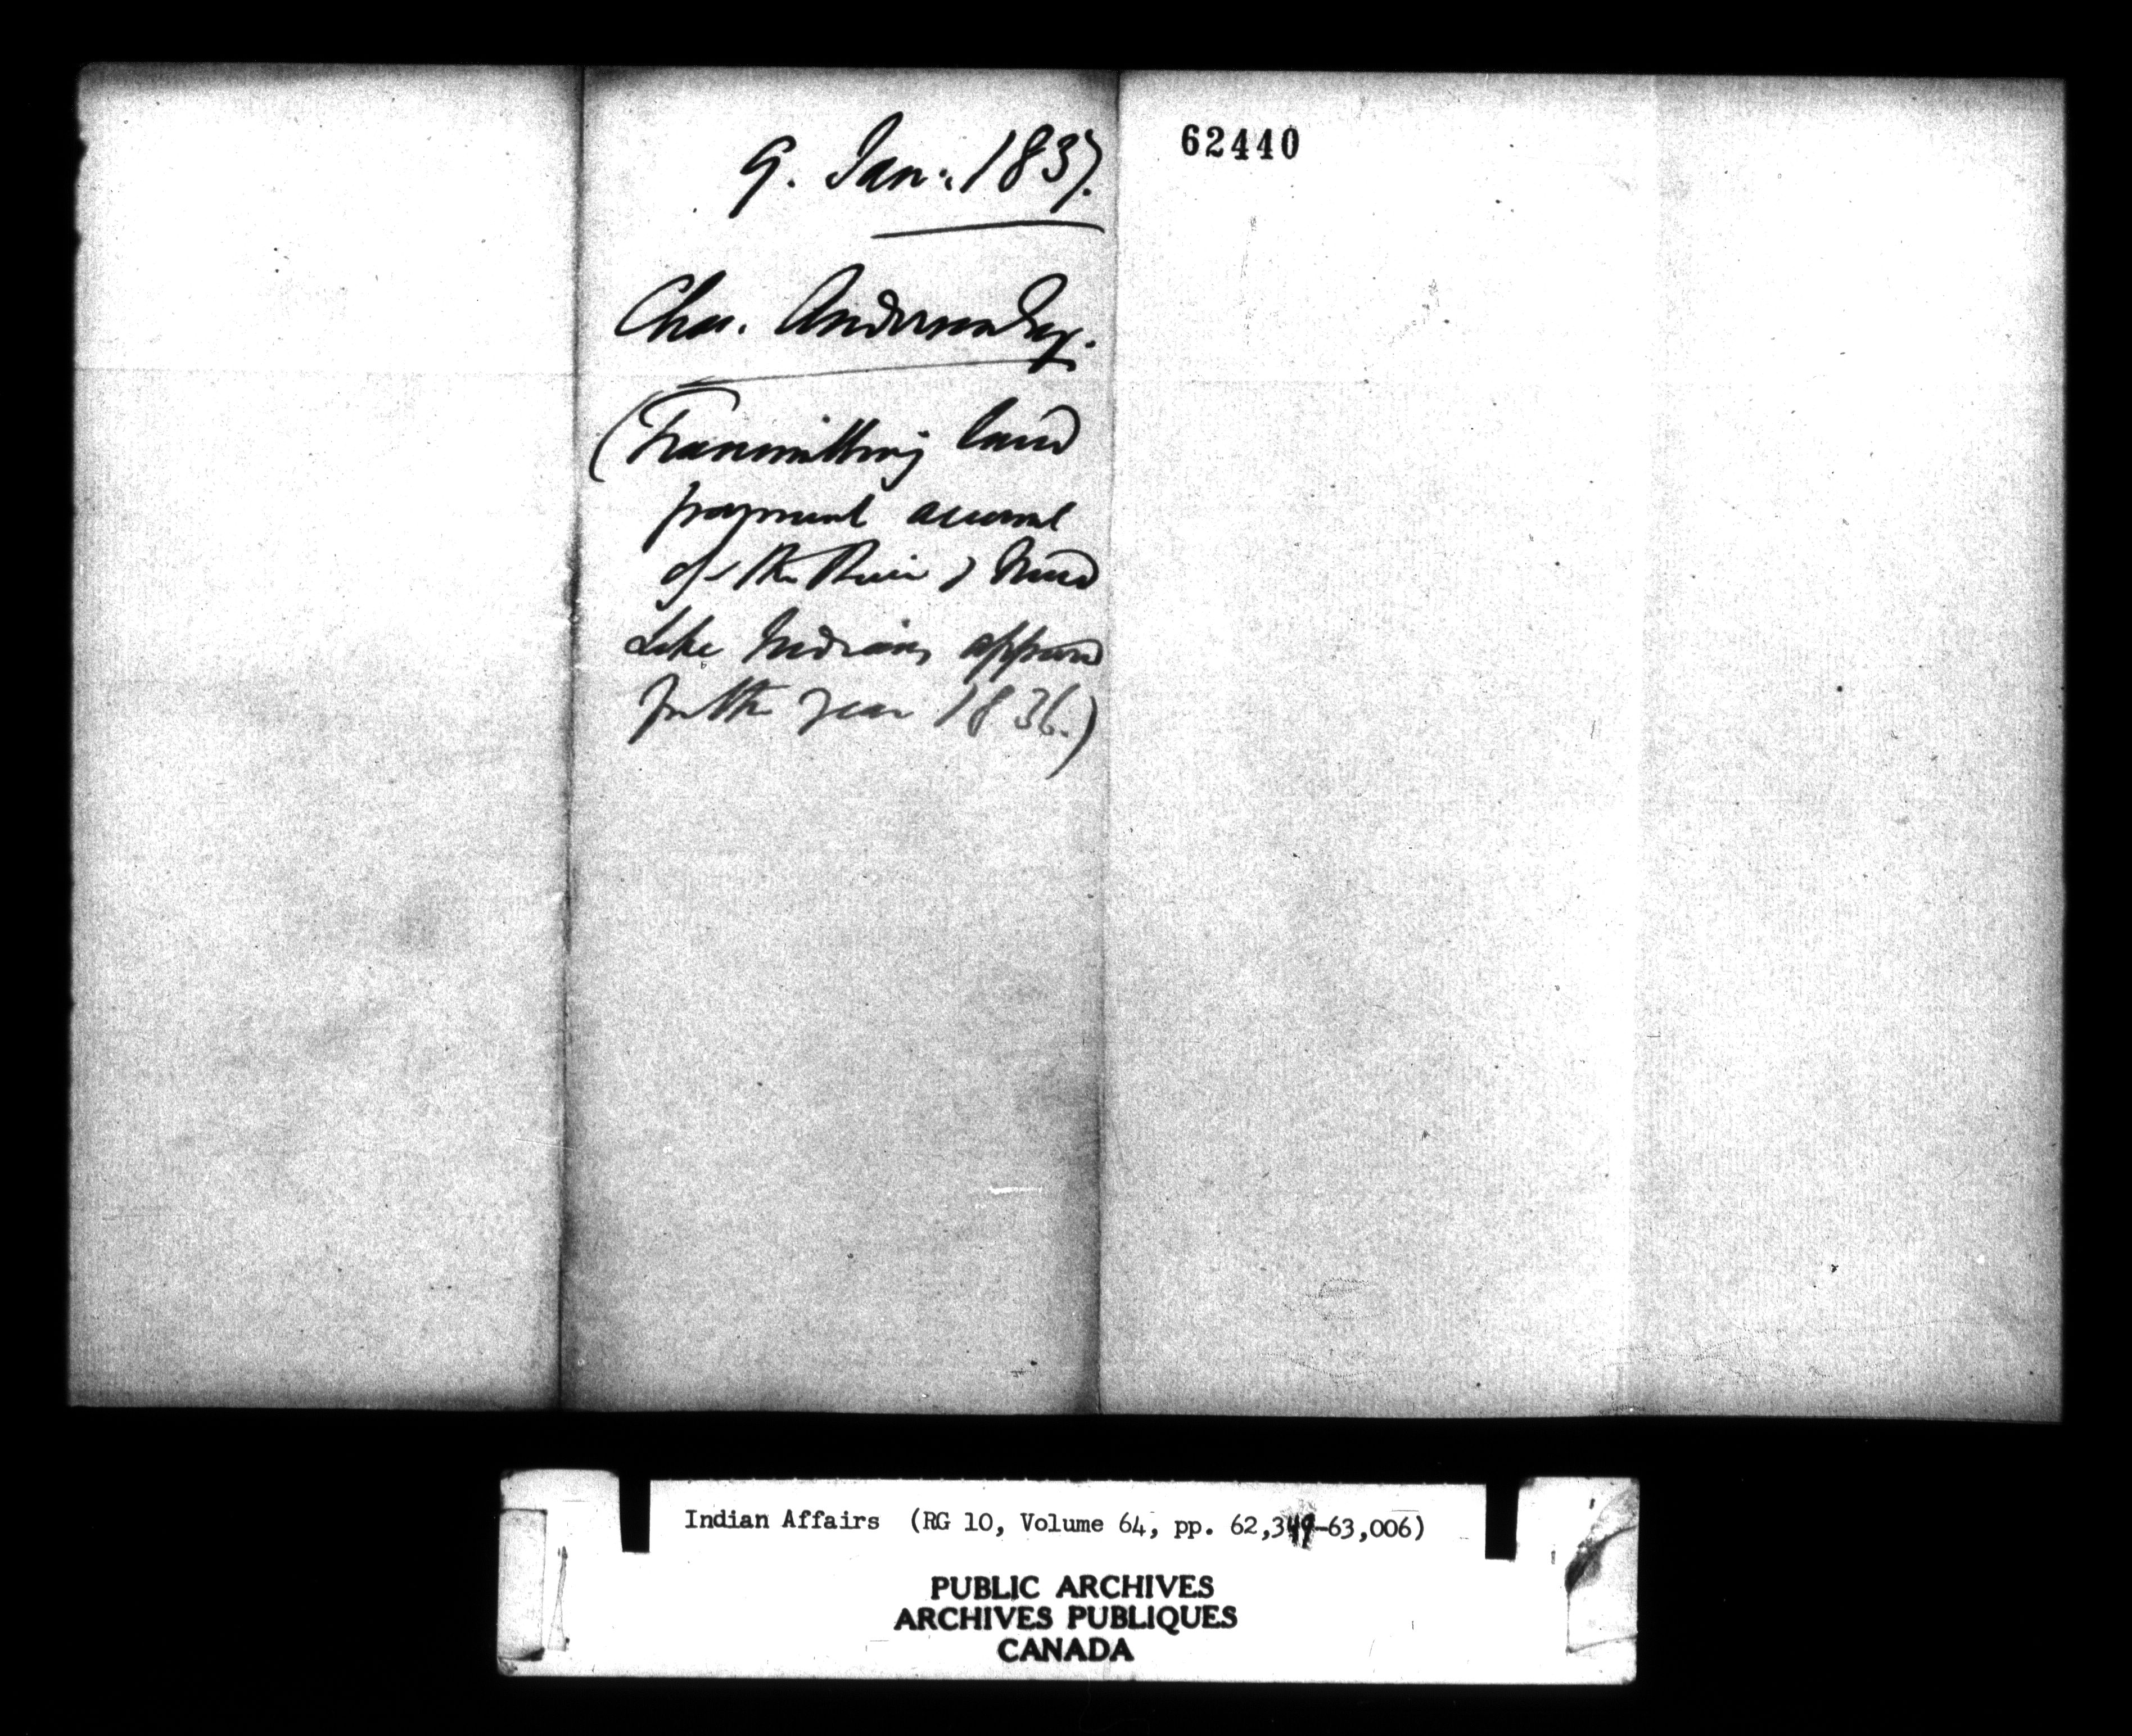 9. Jan: 1837.
62440
Chas. Anderson Esq.
(Transmitting land
payment account
of the Rice & Mud
Lake Indians approved
for the year 1836.)
Indian Affairs (RG 10, Volume 64, pp. 62,349-63,006)
PUBLIC ARCHIVES
ARCHIVES PUBLIQUES
CANADA